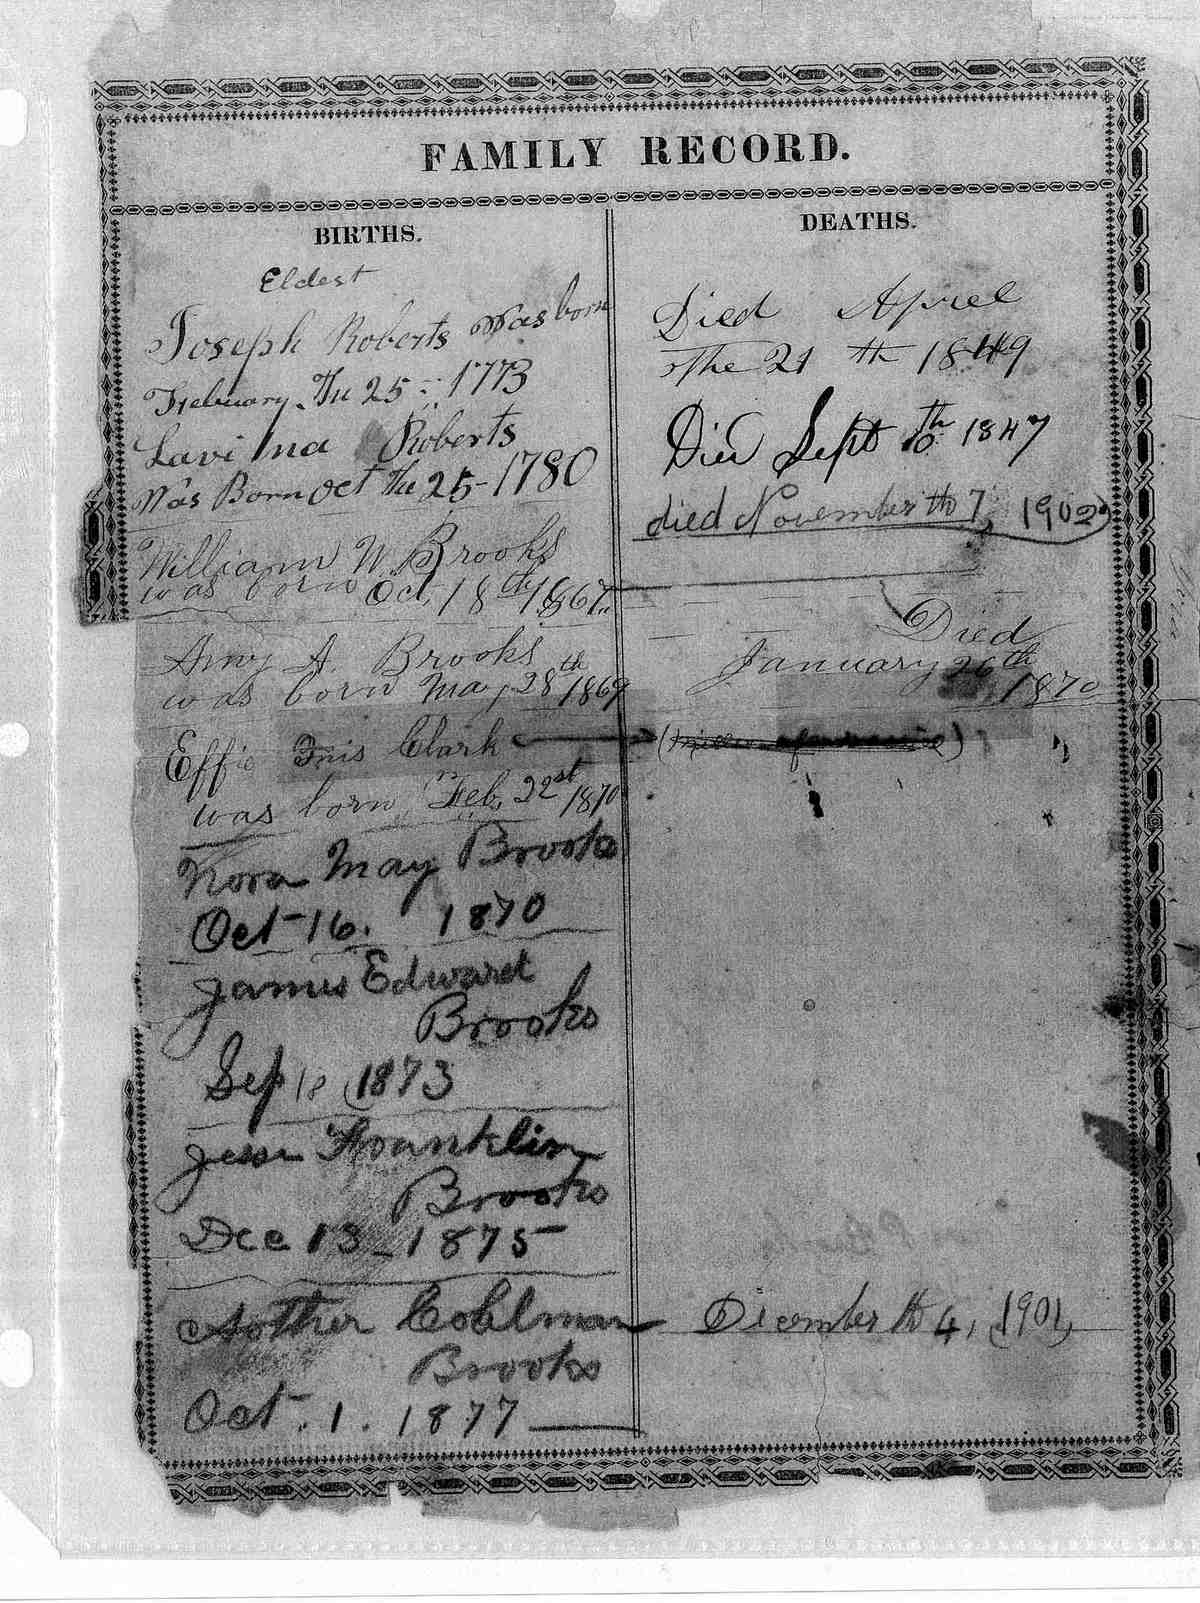 FAMILY RECORD.
BIRTHS.
Eldest
Joseph Roberts Was born
Febuary. The 25 = 1773
Lavi Ina Roberts
Was Born Oct The 25 - 1780
William W. Brooks
was born Oct 18th 1867.
Amy A. Brooks
was born May 28th 1869
Effie Inis Clark
was born Feb. 22st 1870
Nora May Brooks
Oct 16. 1870
James Edward
Brooks
Sep 18 1873
Jesse Franklin
Brooks
Dec 13 - 1875
Cohlman
Brooks
Oct. 1. 1877
DEATHS.
Died Aprel
The 21 th 1849
Died Sept 10th 1847
died November th 7, 1902
Died
January 26th
1870
December th 4, (1901,